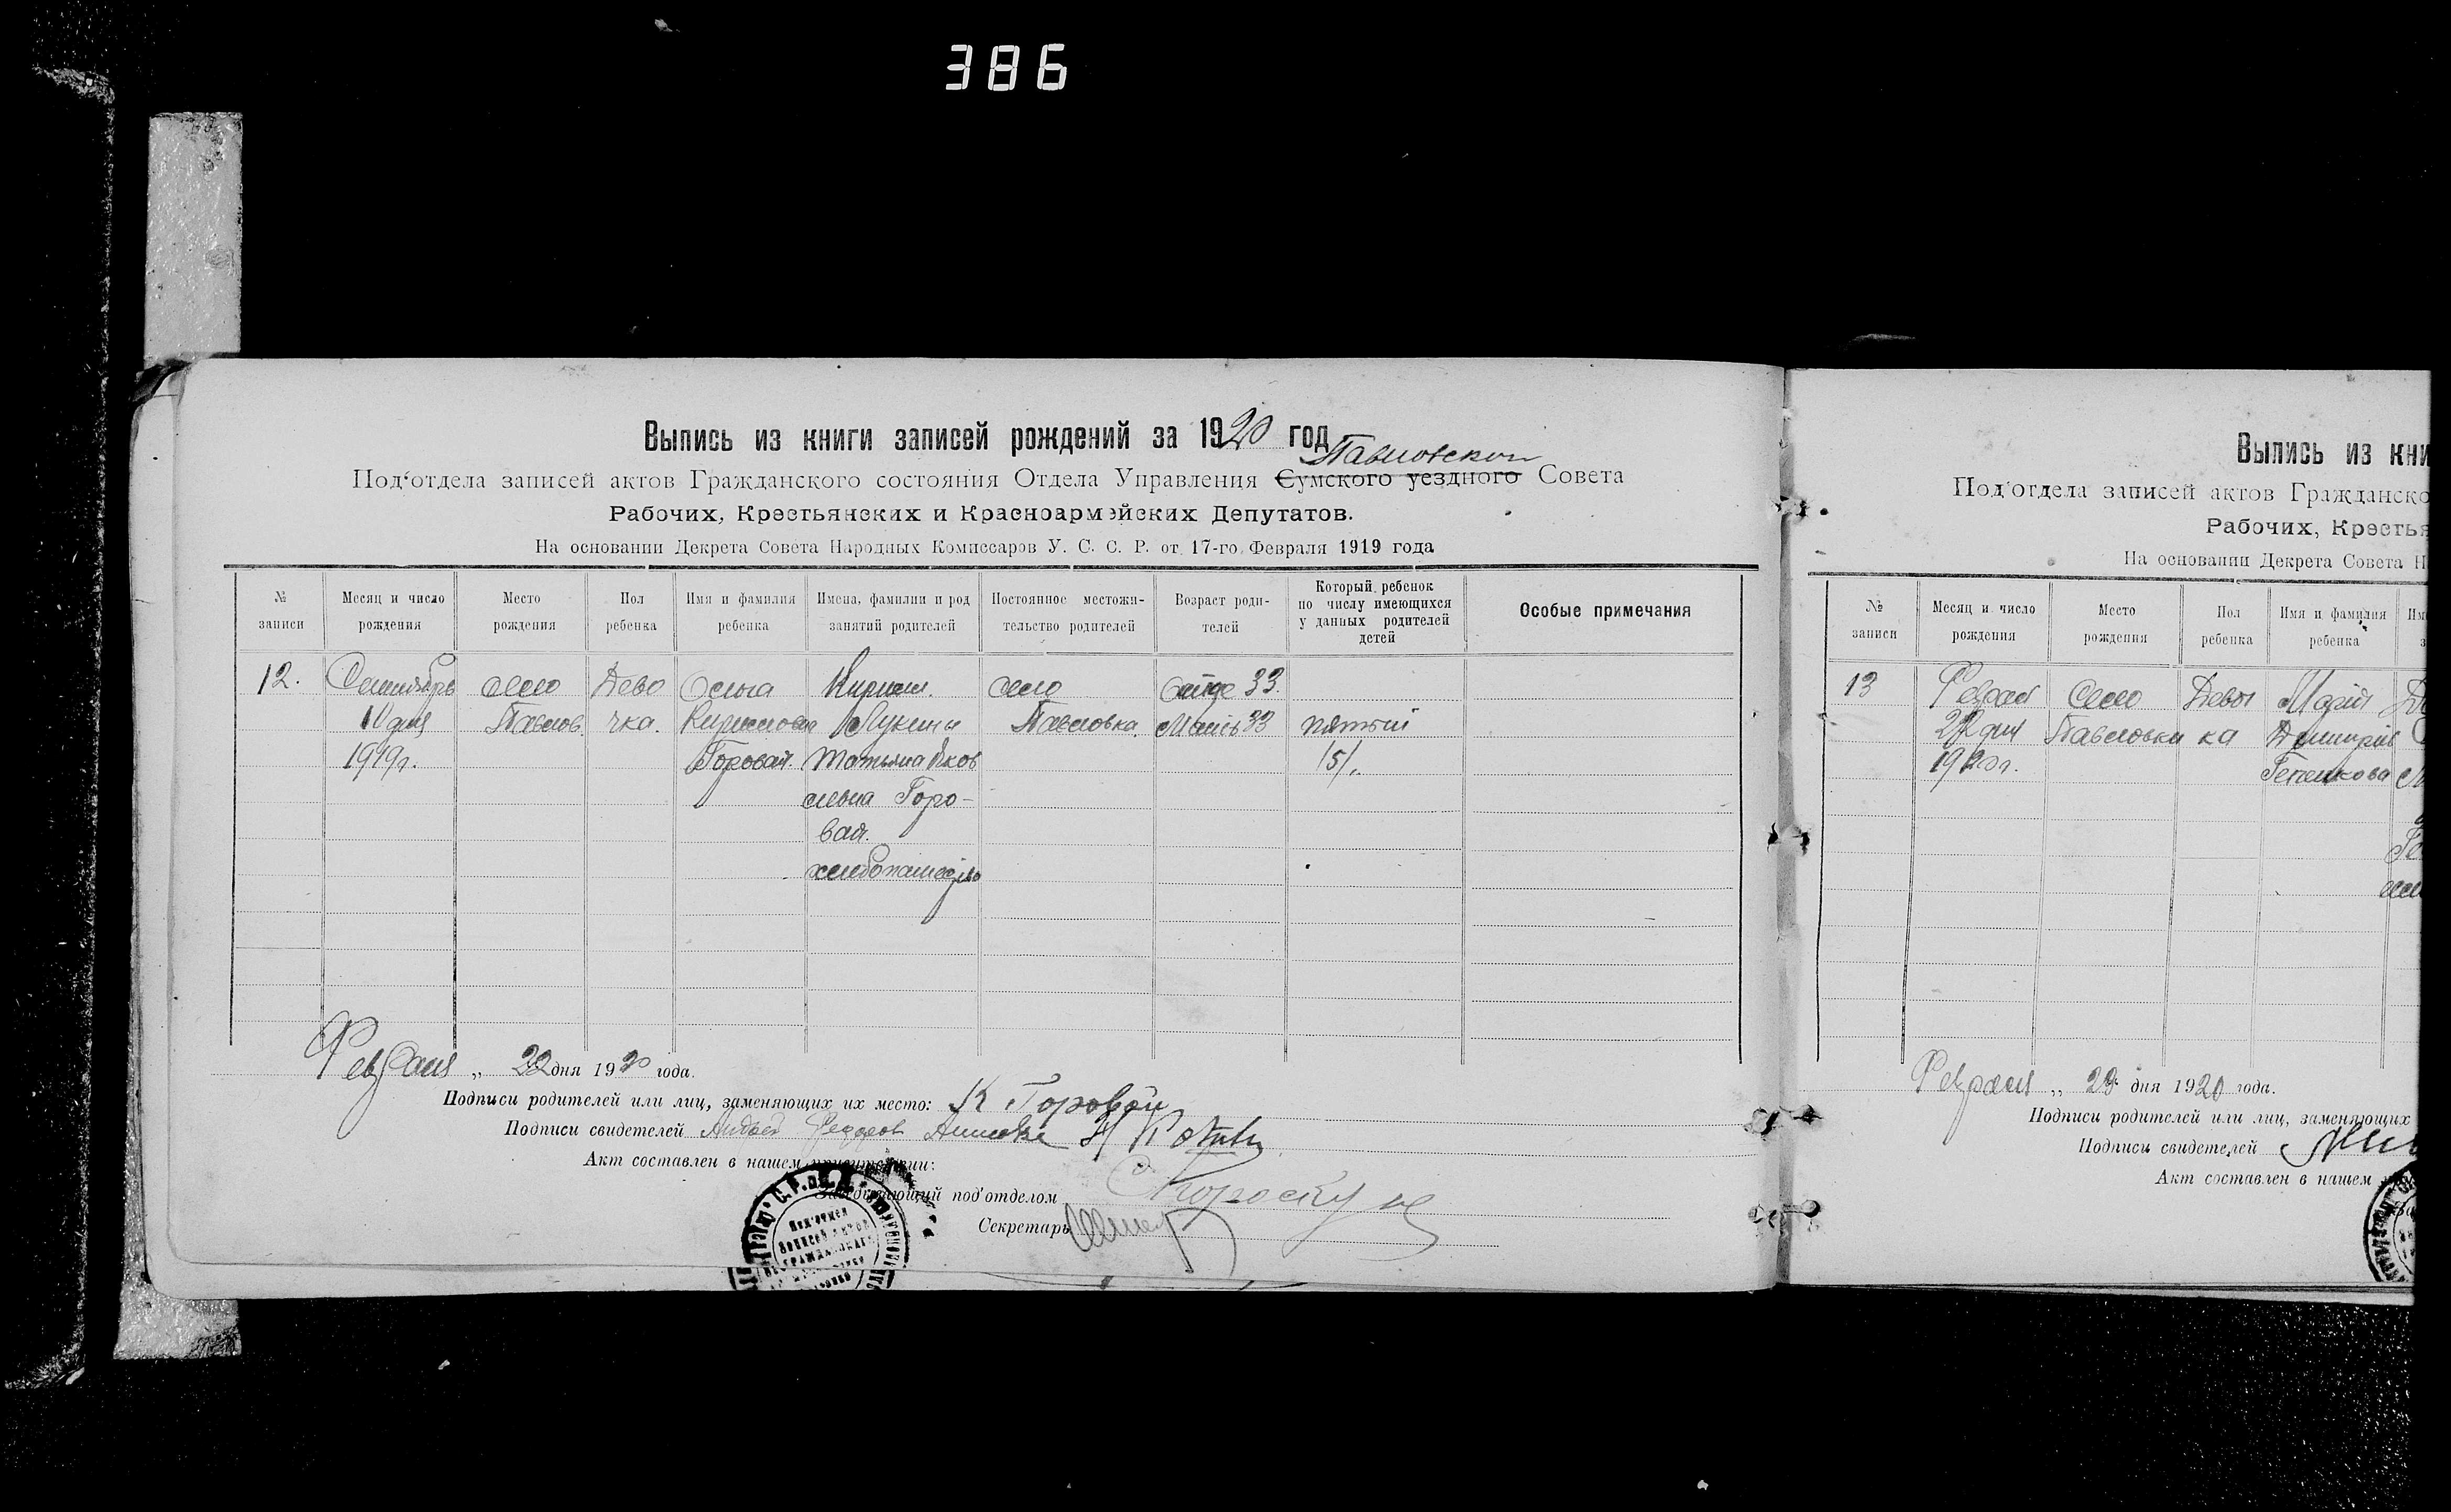 386
Выпись из книги записей рождений за 1920 год
Павловской
Под'отдела записей актов Гражданского состояния Отдела Управления Сумского уездного Совета
Рабочих, Крестьянских и Красноармейских Депутатов.
На основании Декрета Совета Народных Комиссаров У. С. С. Р. от 17-го Февраля 1919 года
№ записи
Месяц и число рождения
Место рождения
Пол ребенка
Имя и фамилия ребенка
Имена, фамилии и род занятий родителей
Постоянное местожительство родителей
Возраст родителей
Который ребенок по числу имеющихся у данных родителей детей
Особые примечания
12.
Сентябрь
10 дня
1919г.
село
Павлов.
Дево
чка.
Ольга
Кирилова
Горовая.
Кирилл.
Лукичи
Татьяна Яков
левна Горо-
вая.
село
Павловка.
Отцу 33.
Мать 33
пятый
/5/.
Февраля „ 22 дня 1920 года.
Подписи родителей или лиц, заменяющих их место: К Горовой
Подписи свидетелей Андрей
Акт составлен в нашем присутствии:
Заведывающий под'отделом
Секретарь
Под'отдел
Записей актов
Гражданского
Выпись из кни
Под'отдела записей актов Гражданско
Рабочих, Крестья
На основании Декрета Совета Н
№ записи
Месяц и число рождения
Место рождения
Пол ребенка
Имя и фамилия ребенка
13
22 дня
1920г.
Село
Павловки
Девоч
ка
Марія
Февраля „ 23 дня 1920 года.
Подписи родителей или лиц, заменяющих
Подписи свидетелей
Акт составлен в нашем